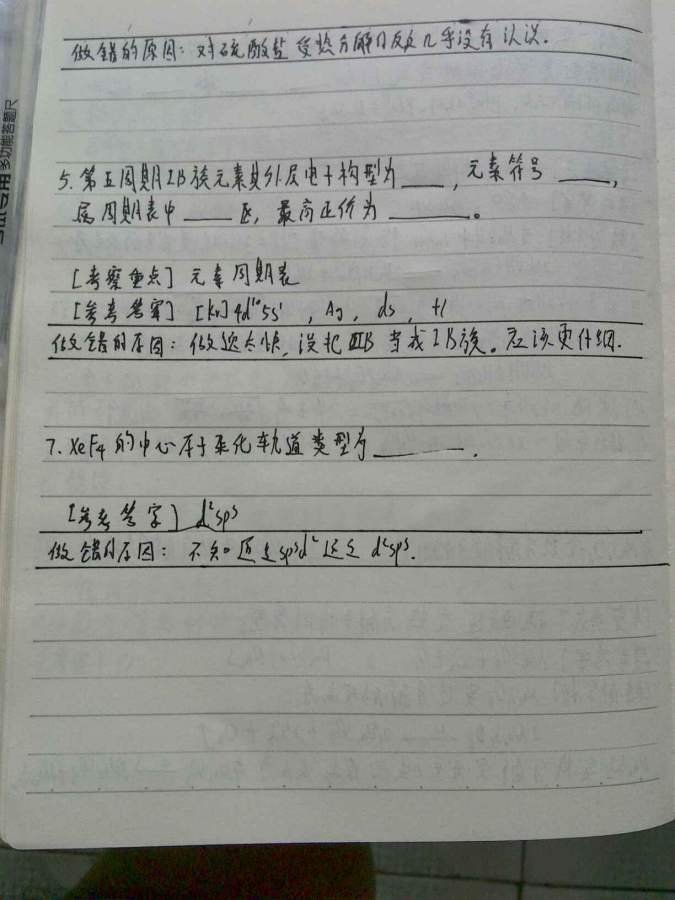 做错的原因：对硫酸盐受热分解的反应几乎没有认识．
5. 第五周期IB族元素其外层电子构型为____，元素符号____，
属周期表中____区，最高正价为____。
[考察重点] 元素周期表
[参考答案] [Kr]4d¹⁰5s¹ , Ag , ds , +1
做错的原因：做题太快，没把ⅢB 当成IB族。应该更仔细．
7. XeF₄的中心原子杂化轨道类型为____．
[参考答案] d²sp³
做错的原因：不知道是sp³d²还是d²sp³．
多功能答题尺